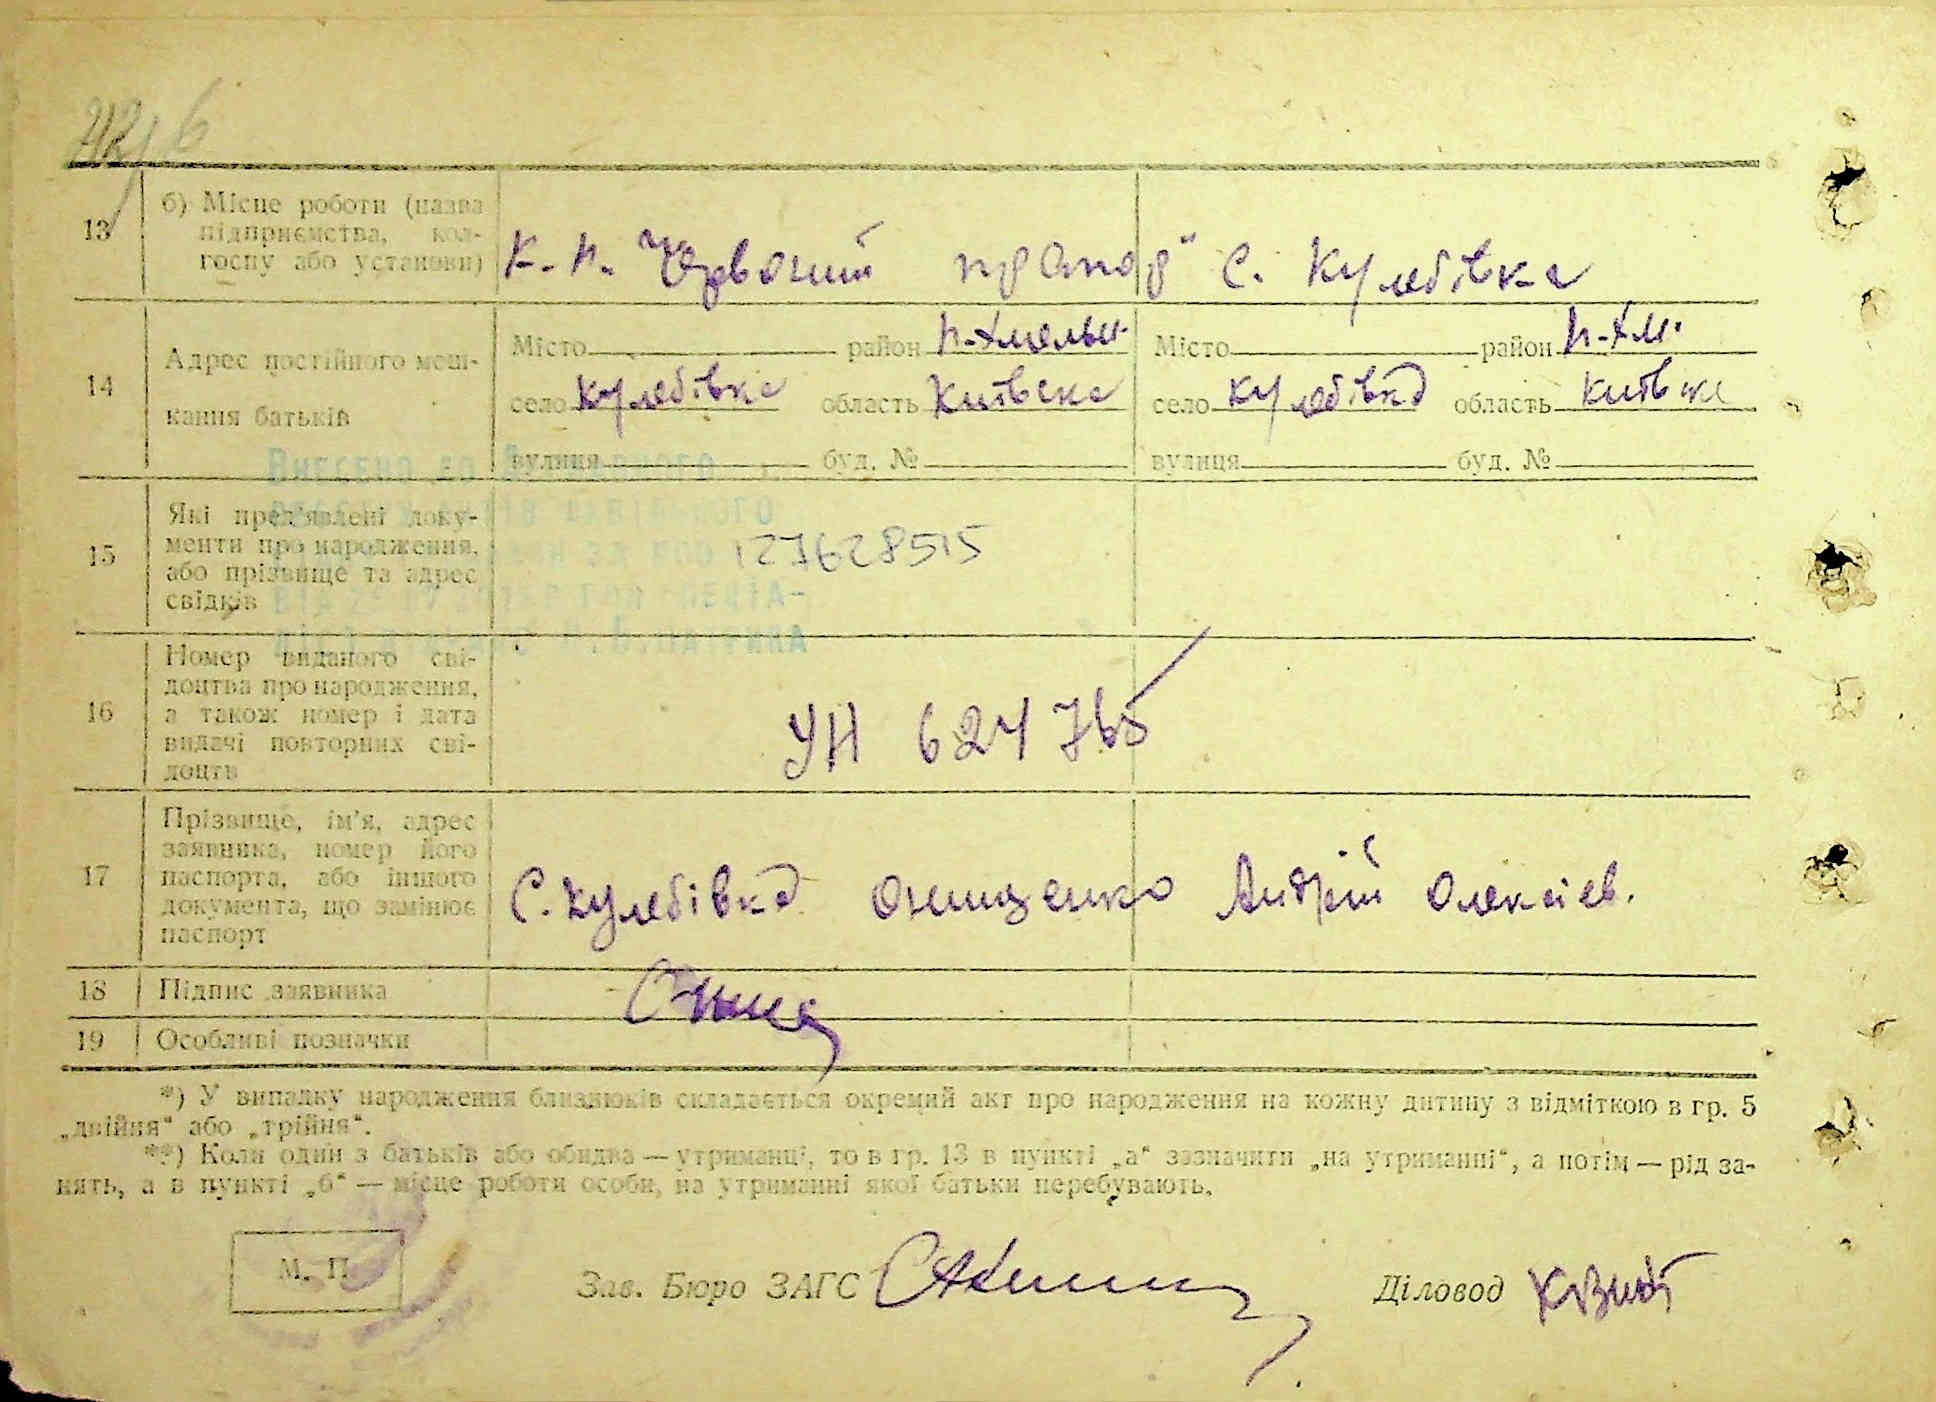 13 б) Місце роботи (назва
підприємства, кол-
госпу або установи)
К-п. "Червоний прапор" с. Кулебівка
14 Адрес постійного меш-
кання батьків
Місто район Н-Хмельн. Місто район Н-Хм.
село Кулебівка область Київська село Кулебівка область Київська
вулиця буд. № вулиця буд. №
Внесено до
15 Які пред'явлені доку-
менти про народження,
або прізвище та адрес
свідків
127628515
16 Номер виданого сві-
доцтва про народження,
а також номер і дата
видачі повторних сві-
доцтв
УН 624765
17 Прізвище, ім'я, адрес
заявника, номер його
паспорта, або іншого
документа, що замінює
паспорт
С. Кулебівка Онищенко Андрій Олексієв.
18 Підпис заявника
19 Особливі позначки
*) У випадку народження близнюків складається окремий акт про народження на кожну дитину з відміткою в гр. 5
„двійня“ або „трійня“.
**) Коли один з батьків або обидва — утриманці, то в гр. 13 в пункті „а“ зазначити „на утриманні“, а потім — рід за-
нять, а в пункті „б“ — місце роботи особи, на утриманні якої батьки перебувають.
М. П.
Зав. Бюро ЗАГС Діловод